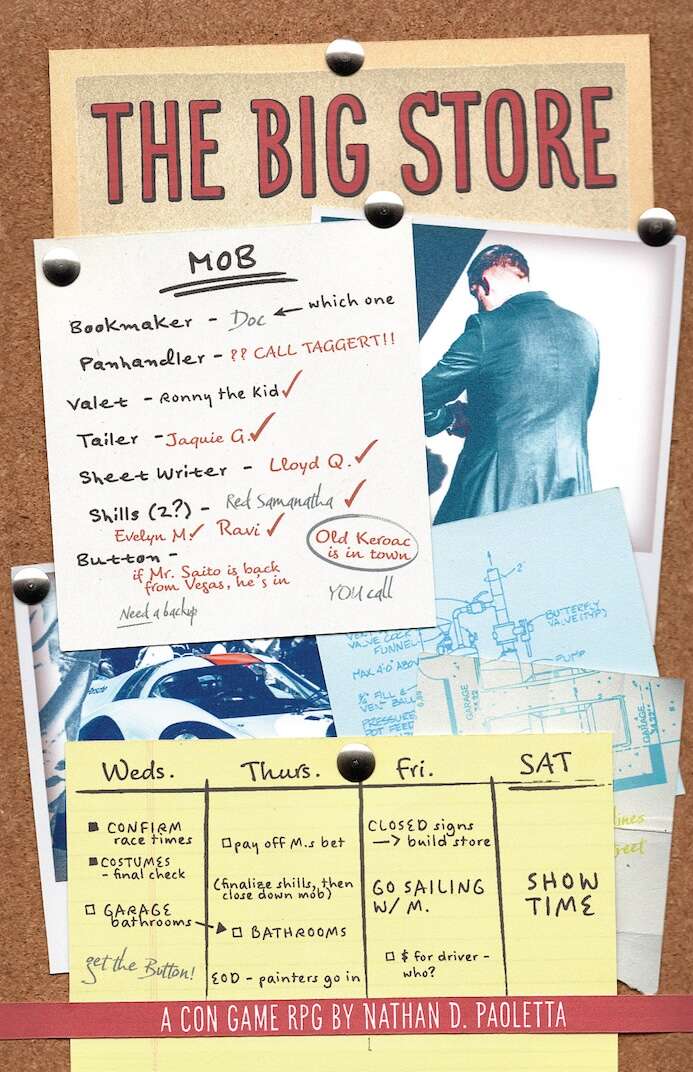 THE BIG STORE
MOB
Bookmaker - Doc ← which one
Panhandler - ?? CALL TAGGERT!!
Valet - Ronny the Kid ✓
Tailer - Jaquie G. ✓
Sheet Writer - Lloyd Q. ✓
Shills (2?) - Red Samanatha ✓
Evelyn M. ✓ Ravi ✓
Button -
if Mr. Saito is back
from Vegas, he's in
Need a backup
Old Keroac
is in town
YOU call
2"
BUTTERFLY
VALVE (TYP)
VALVE COCK
FUNNEL
MAX 4'0" ABOV
PUMP
½" FILL &
VENT BALL
PRESSURE
POT FEED
GARAGE
GARAGE
lines
Weds.
Thurs.
Fri.
SAT
■ CONFIRM
race times
■ COSTUMES
- final check
□ GARAGE
bathrooms
get the Button!
□ pay off M.s bet
(finalize shills, then
close down mob)
□ BATHROOMS
EOD - painters go in
CLOSED signs
→ build store
GO SAILING
W/ M.
□ $ for driver -
who?
SHOW
TIME
A CON GAME RPG BY NATHAN D. PAOLETTA